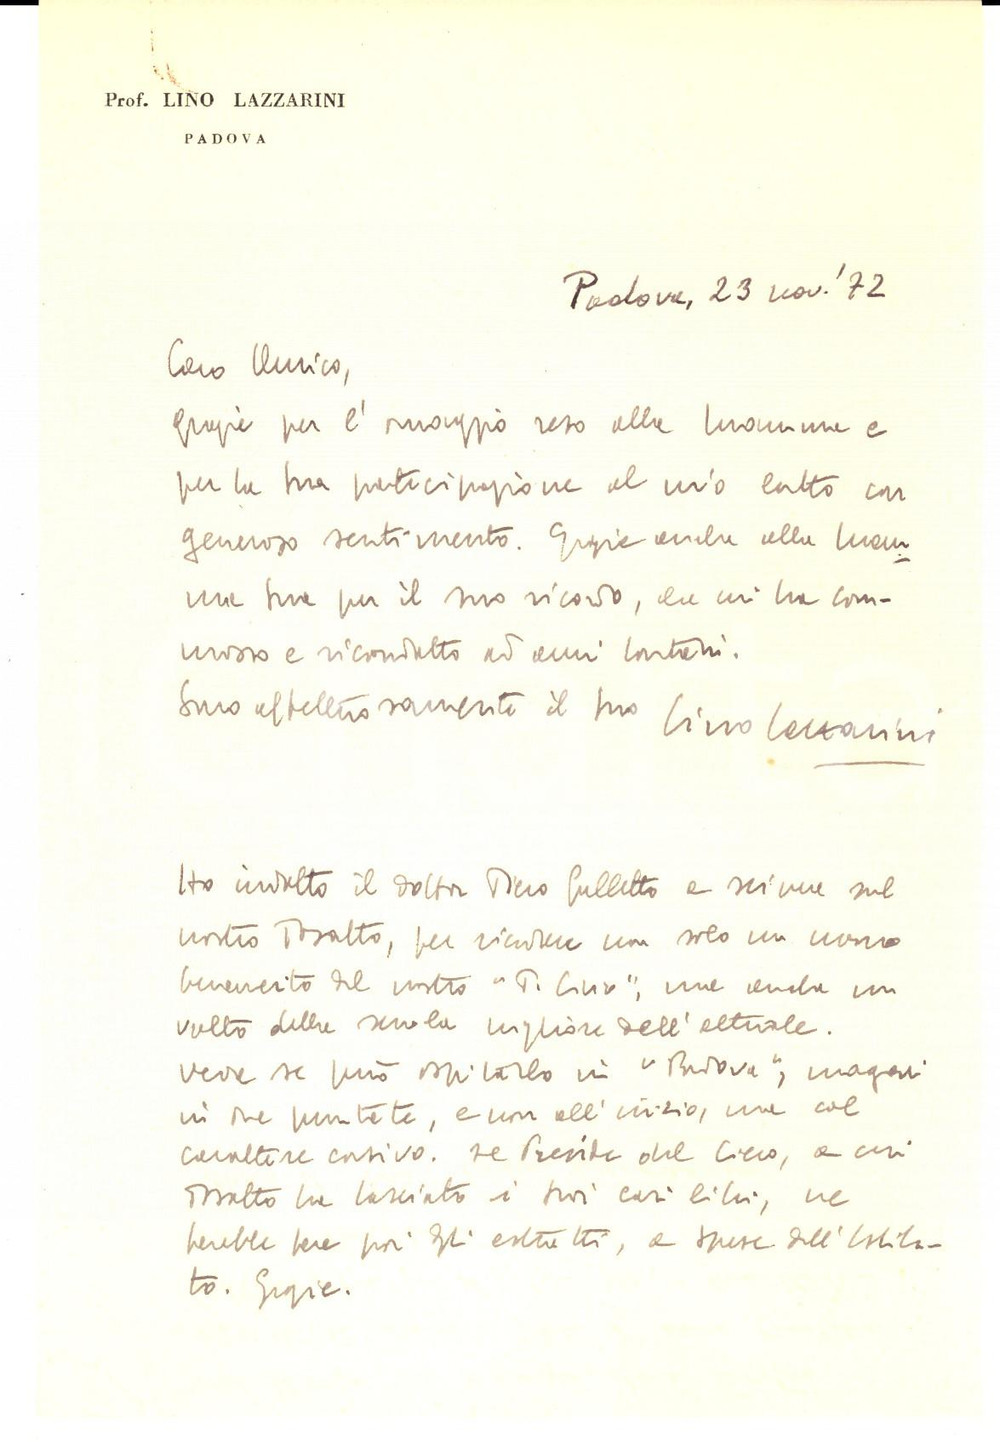 Prof. LINO LAZZARINI
PADOVA
Padova, 23 nov. '72
Caro Enrico,
grazie per l'omaggio reso alla Mamma e
per la tua partecipazione al mio lutto con
generoso sentimento. Grazie anche alla Mam-
ma tua per il suo ricordo, che mi ha com-
mosso e ricondotto ad anni lontani.
Sono affettuosamente il tuo Lino Lazzarini
Ho indotto il dottor Piero Galletto a scrivere sul
nostro, per ricordare non solo un uomo
benemerito del nostro "T. Livio", ma anche un
volto della scuola migliore dell'attuale.
Vede se può ospitarlo in "Padova", magari
in due puntate, e non all'inizio, ma col
carattere corsivo. Il Preside del Liceo, a cui
ha lasciato i suoi cari libri, ne
farebbe fare poi gli estratti, a spese dell'Istitu-
to. Grazie.